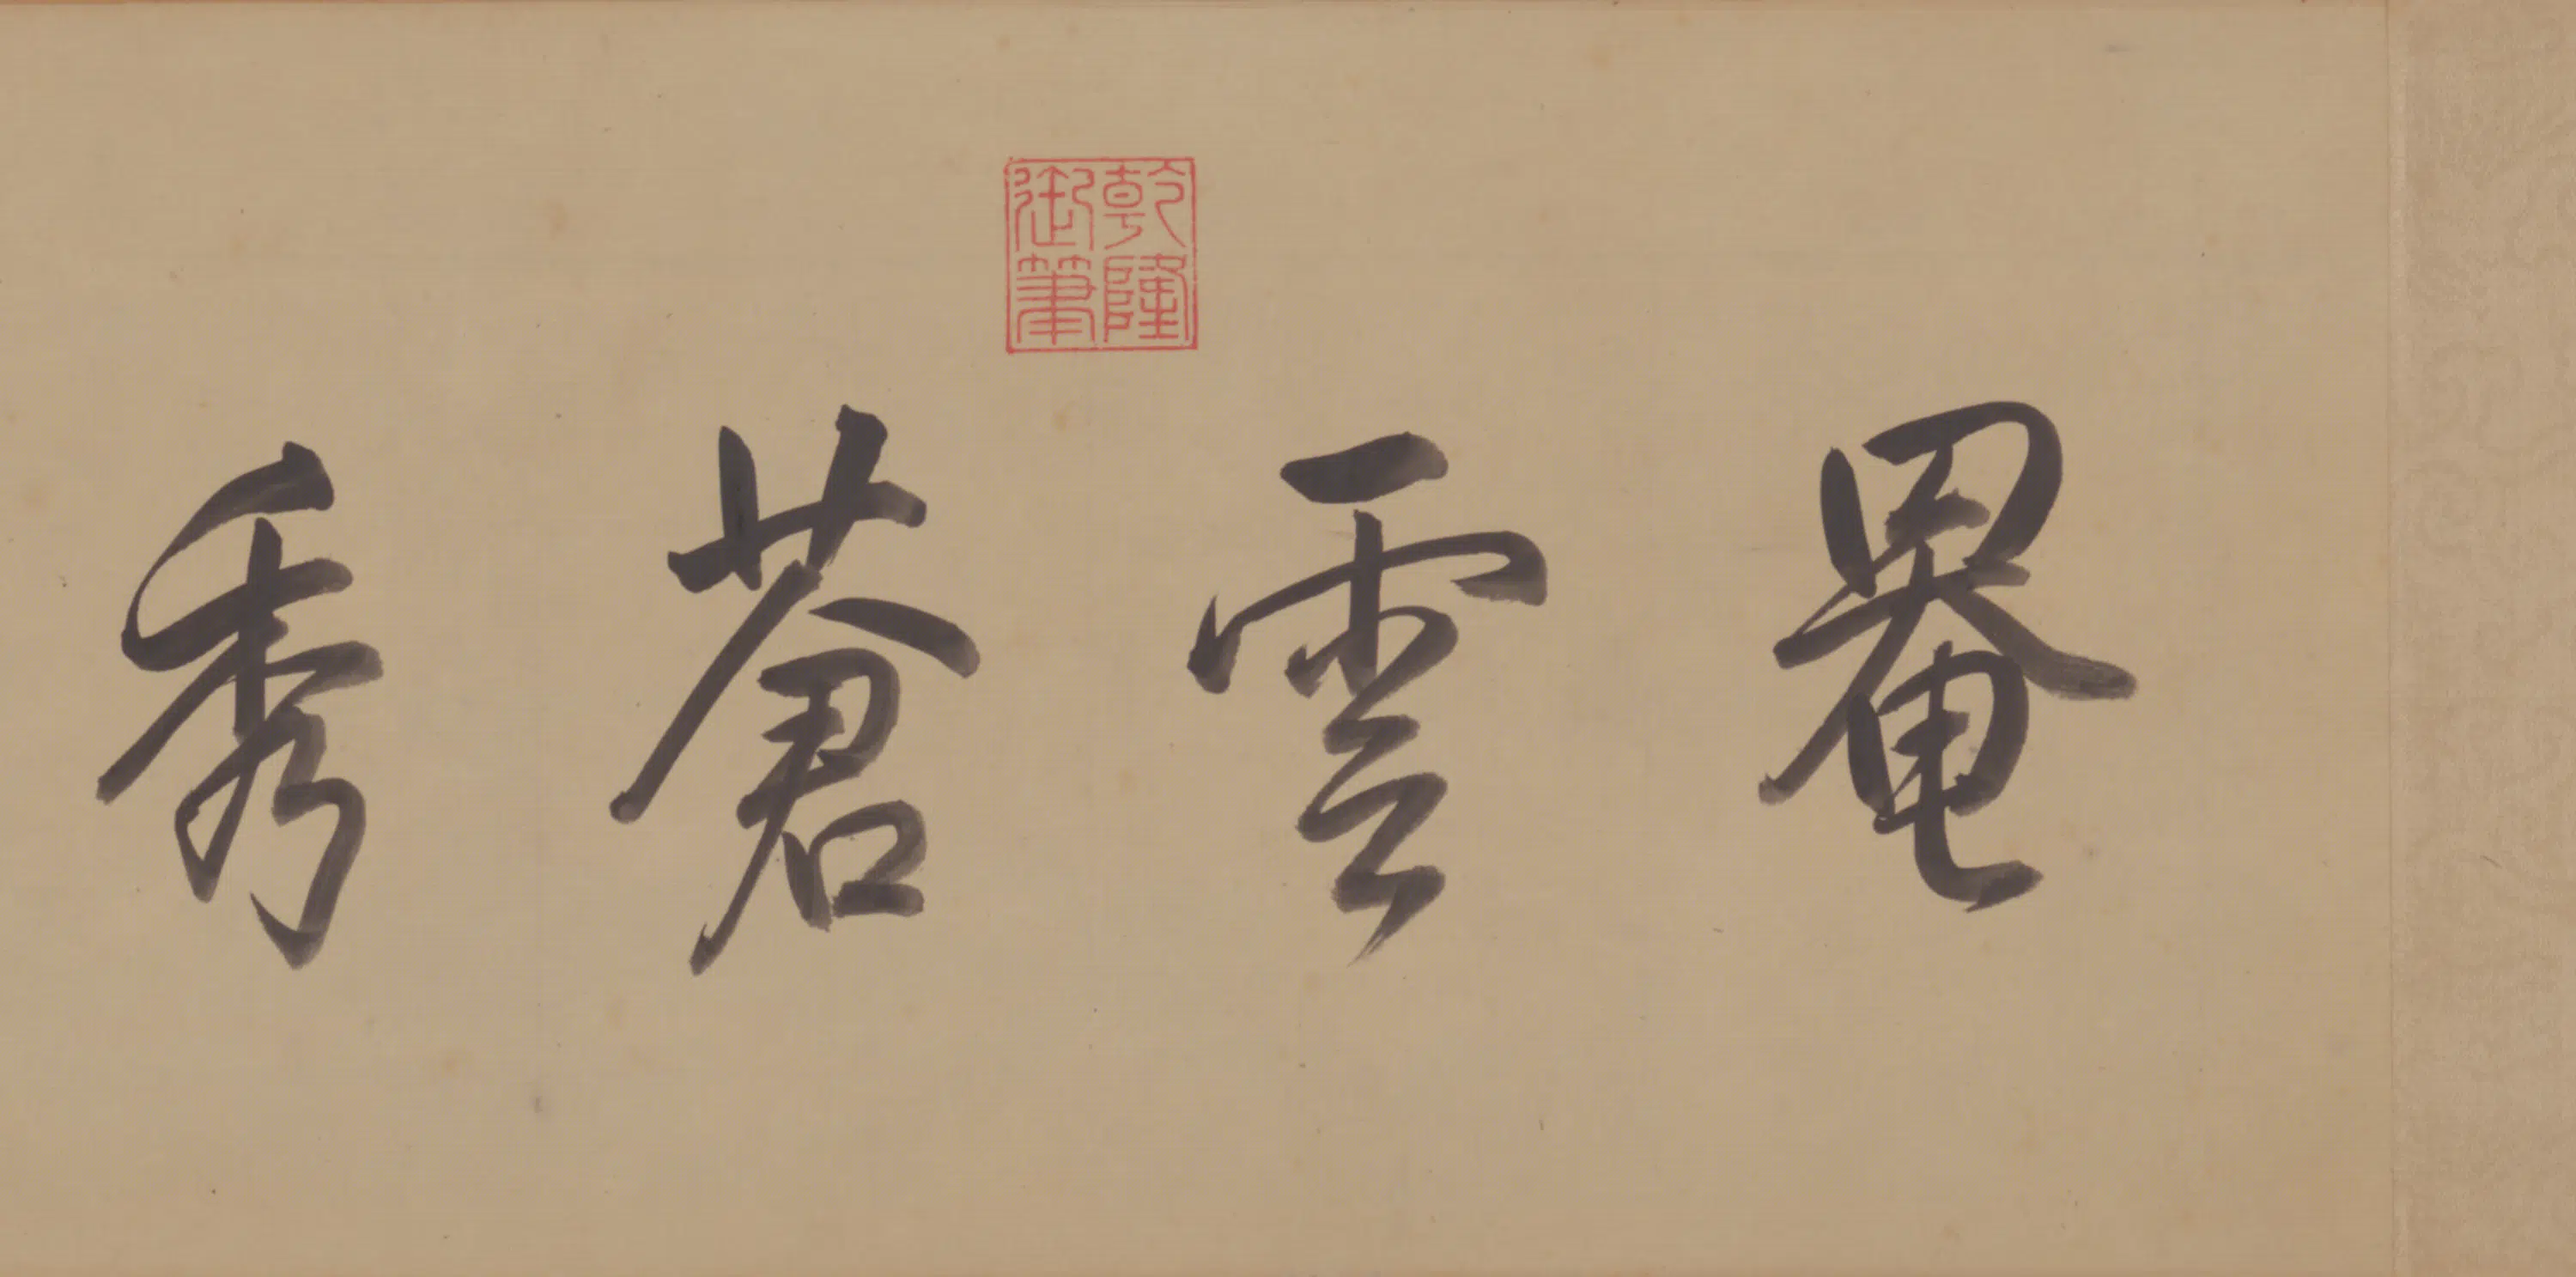 罨雲蒼秀
乾隆御筆